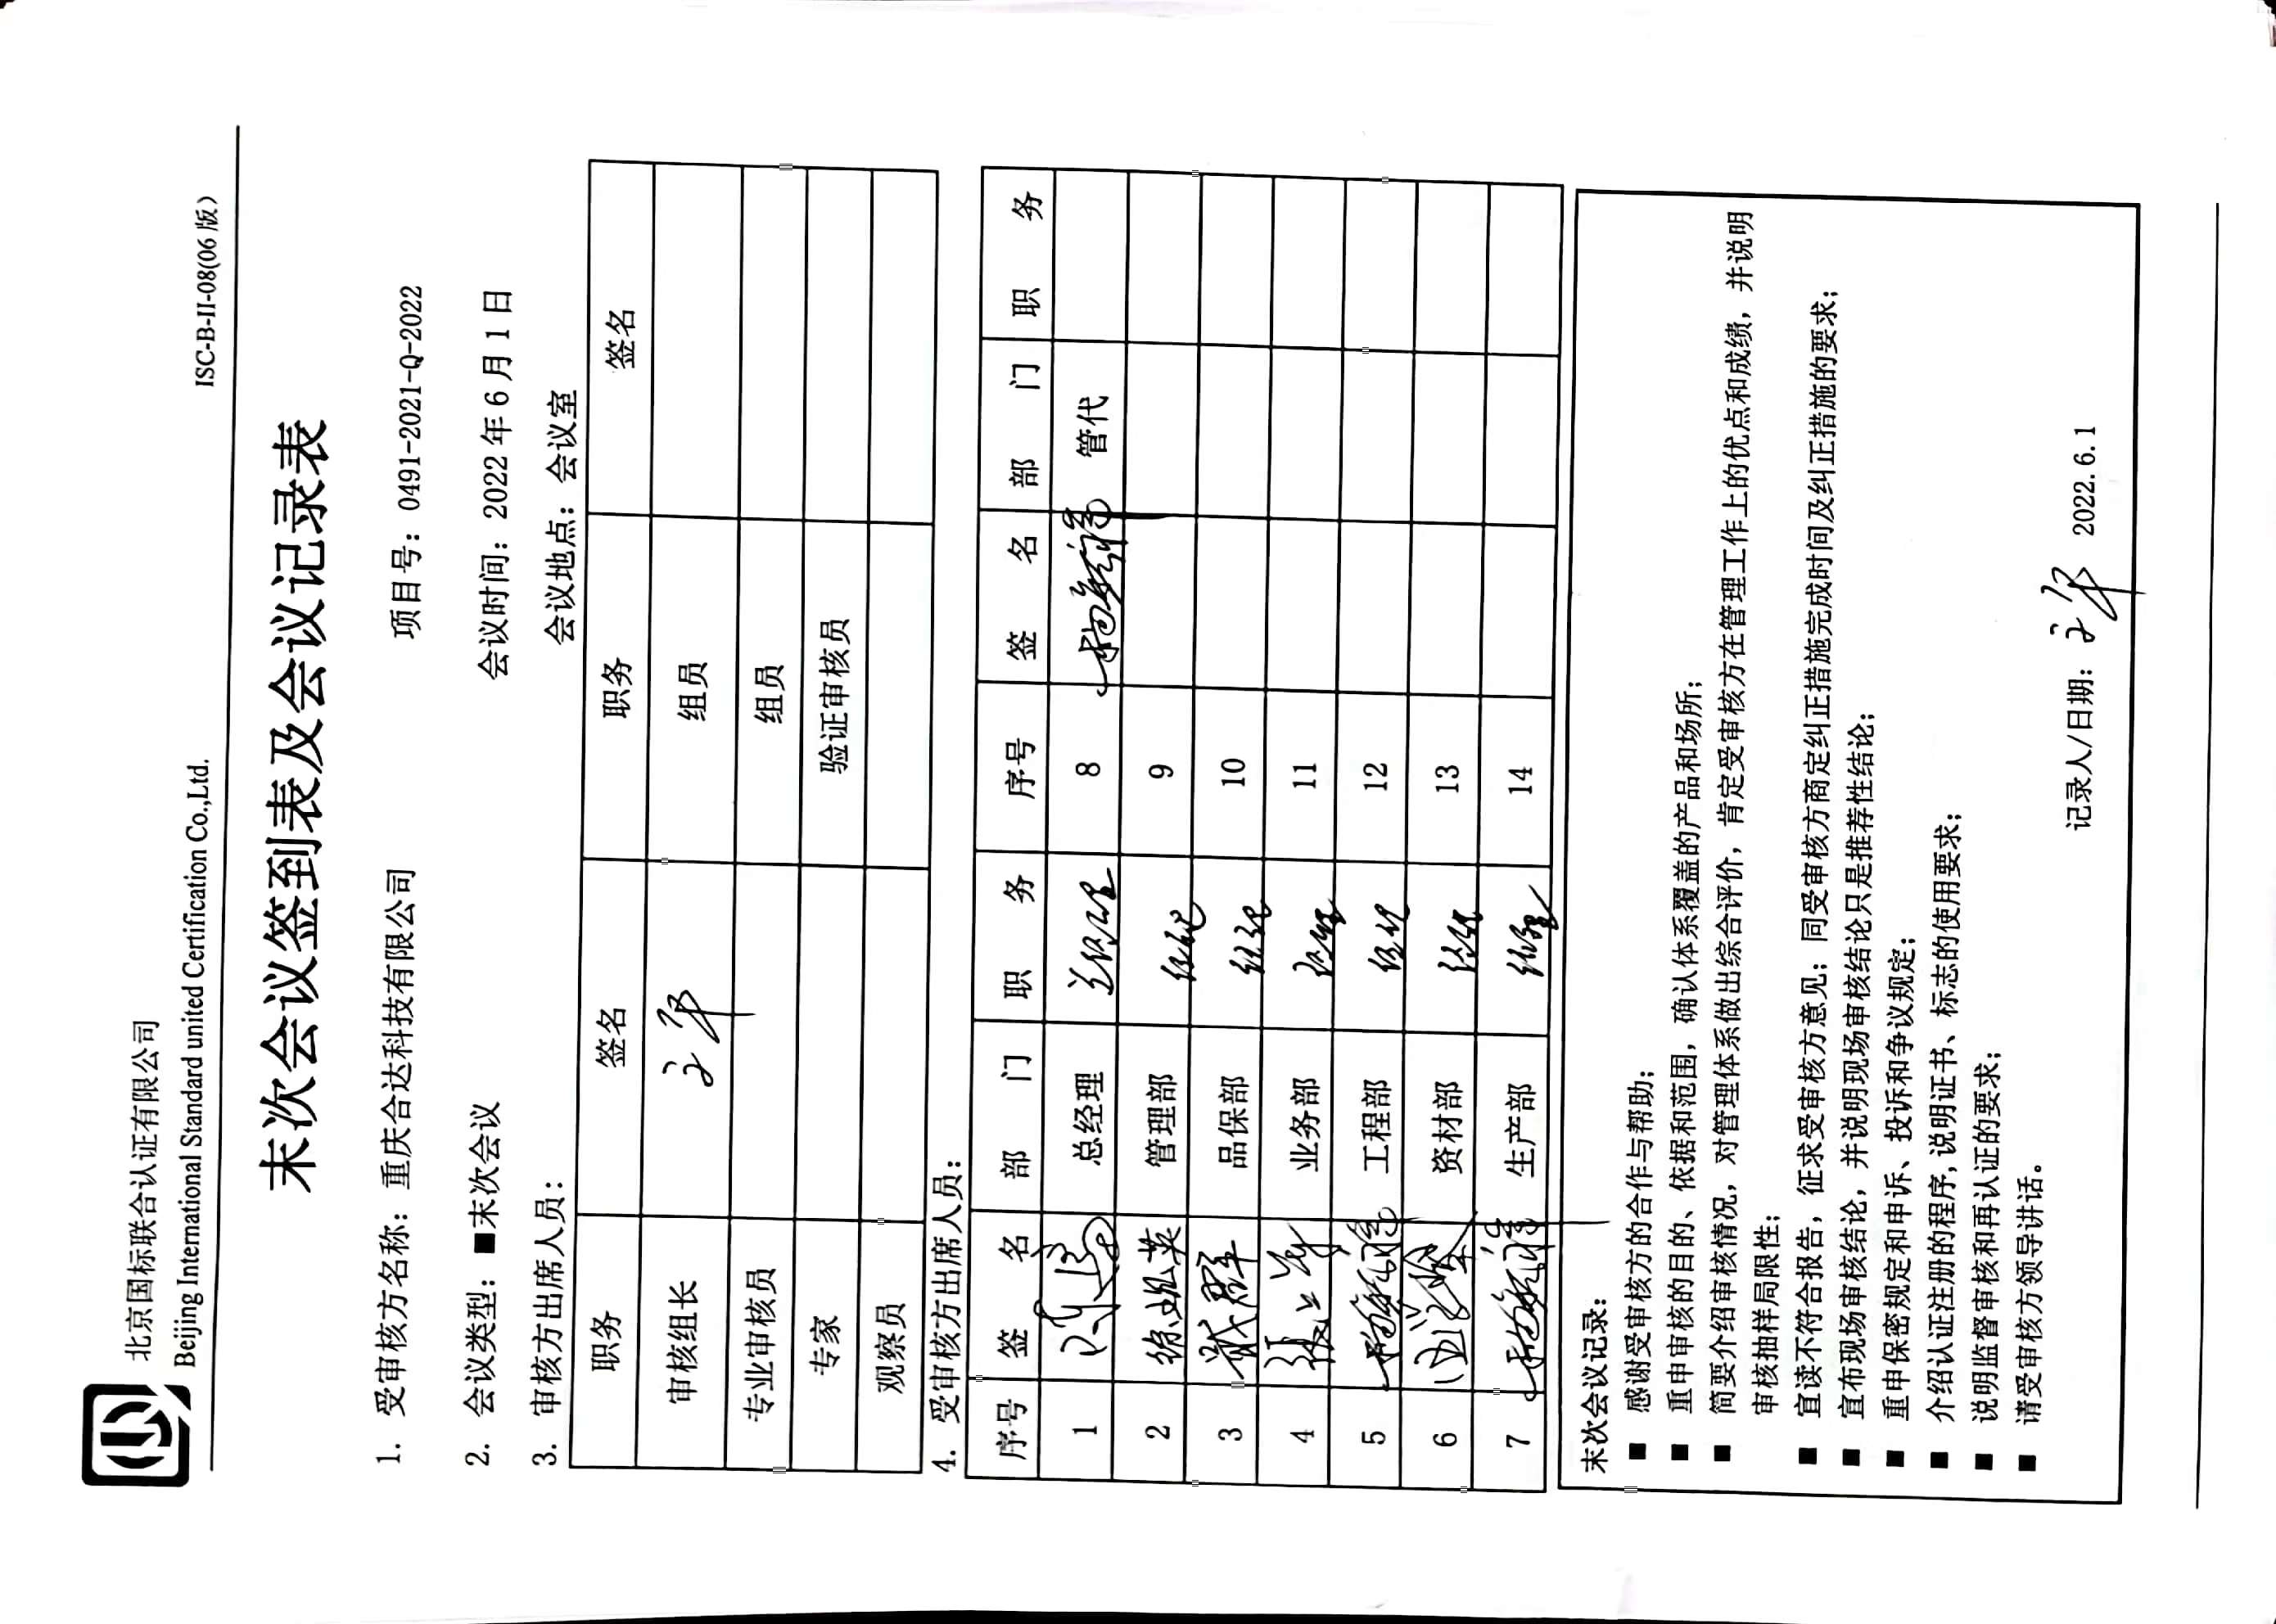 北京国标联合认证有限公司
Beijing International Standard united Certification Co.,Ltd.
ISC-B-II-08(06 版)
末次会议签到表及会议记录表
1. 受审核方名称：重庆合达科技有限公司 项目号：0491-2021-Q-2022
2. 会议类型：■末次会议 会议时间：2022 年 6 月 1 日
3. 审核方出席人员： 会议地点：会议室
职务 签名 职务 签名
审核组长 组员
专业审核员 组员
专家 验证审核员
观察员
4. 受审核方出席人员：
序号 签 名 部 门 职 务 序号 签 名 部 门 职 务
1 总经理 总经理 8 管代
2 徐泓英 管理部 经理 9
3 戴群 品保部 经理 10
4 业务部 经理 11
5 工程部 经理 12
6 资材部 经理 13
7 生产部 经理 14
末次会议记录：
■ 感谢受审核方的合作与帮助；
■ 重申审核的目的、依据和范围，确认体系覆盖的产品和场所；
■ 简要介绍审核情况，对管理体系做出综合评价，肯定受审核方在管理工作上的优点和成绩，并说明
审核抽样局限性；
■ 宣读不符合报告，征求受审核方意见；同受审核方商定纠正措施完成时间及纠正措施的要求；
■ 宣布现场审核结论，并说明现场审核结论只是推荐性结论；
■ 重申保密规定和申诉、投诉和争议规定；
■ 介绍认证注册的程序,说明证书、标志的使用要求；
■ 说明监督审核和再认证的要求；
■ 请受审核方领导讲话。
记录人/日期： 2022.6.1